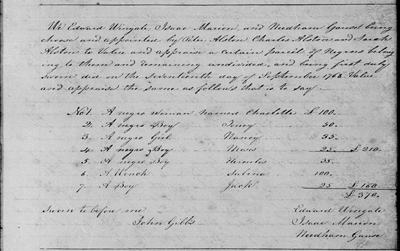 We Edward Wingate, Isaac Marion, and Needham Gause being
chosen and appointed by Peter Alston Charles Alston and Sarah
Alston to Value and appraise a certain parcel of Negroes belong
ing to them and remaining undivided, and being first duly
Sworn did on the Seventeenth day of September 1766 Value
and appraise the same as follows that is to say.
No 1. A negro woman Named Charlotte £ 100.
2. A negro Boy Toney 50.
3. A negro Girl Nancy 35.
4. A negro Boy Moses 25 £ 210.
5. A negro Boy Hercules 35.
6. A Wench Sabina 100.
7. A Boy Jack 25 £ 160
£ 370.
Sworn to before me Edward Wingate
John Gibbs Isaac Marion
Needham Gause